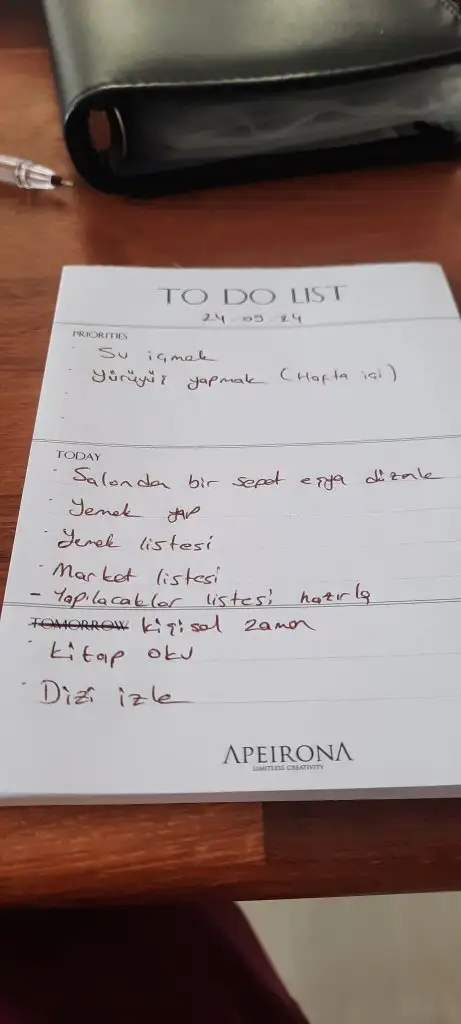 TO DO LIST
24.09.24
PRIORITIES
Su içmek
Yürüyüş yapmak (Hafta içi)
TODAY
Salondan bir sepet eşya dizenle
Yemek yap
Yemek listesi
Market listesi
- Yapılacaklar listesi hazırla
TOMORROW Kişisel zaman
Kitap oku
Dizi izle
APEIRONA
LIMITLESS CREATIVITY